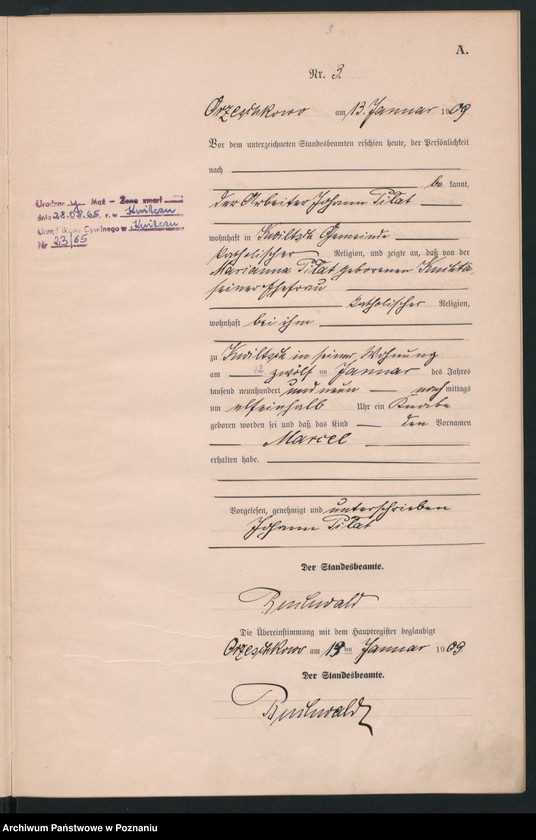 3
A.
Nr. 3.
Orzeschkowo am 13. Januar 1909
Vor dem unterzeichneten Standesbeamten erschien heute, der Persönlichkeit
nach
be kannt,
der Arbeiter Johann Pilat
wohnhaft in Kwiltsch Gemeinde
katholischer Religion, und zeigte an, daß von der
Marianna Pilat geborenen
seiner Ehefrau
katholischer Religion,
wohnhaft bei ihm
zu Kwiltsch in seiner Wohnung
am 12 zwölf ten Januar des Jahres
tausend neunhundert und neun nach mittags
um elfeinhalb Uhr ein Knabe
geboren worden sei und daß das Kind den Vornamen
Marcel
erhalten habe.
Vorgelesen, genehmigt und unterschrieben
Johann Pilat
Der Standesbeamte.
Die Übereinstimmung mit dem Hauptregister beglaubigt
Orzeschkowo am 13 ten Januar 1909
Der Standesbeamte.
Urodzony Mąż - Żona zmarł
dnia 28.08.65 r. w Kwilczu
Urząd Stanu Cywilnego w Kwilczu
Nr 23/65
Archiwum Państwowe w Poznaniu